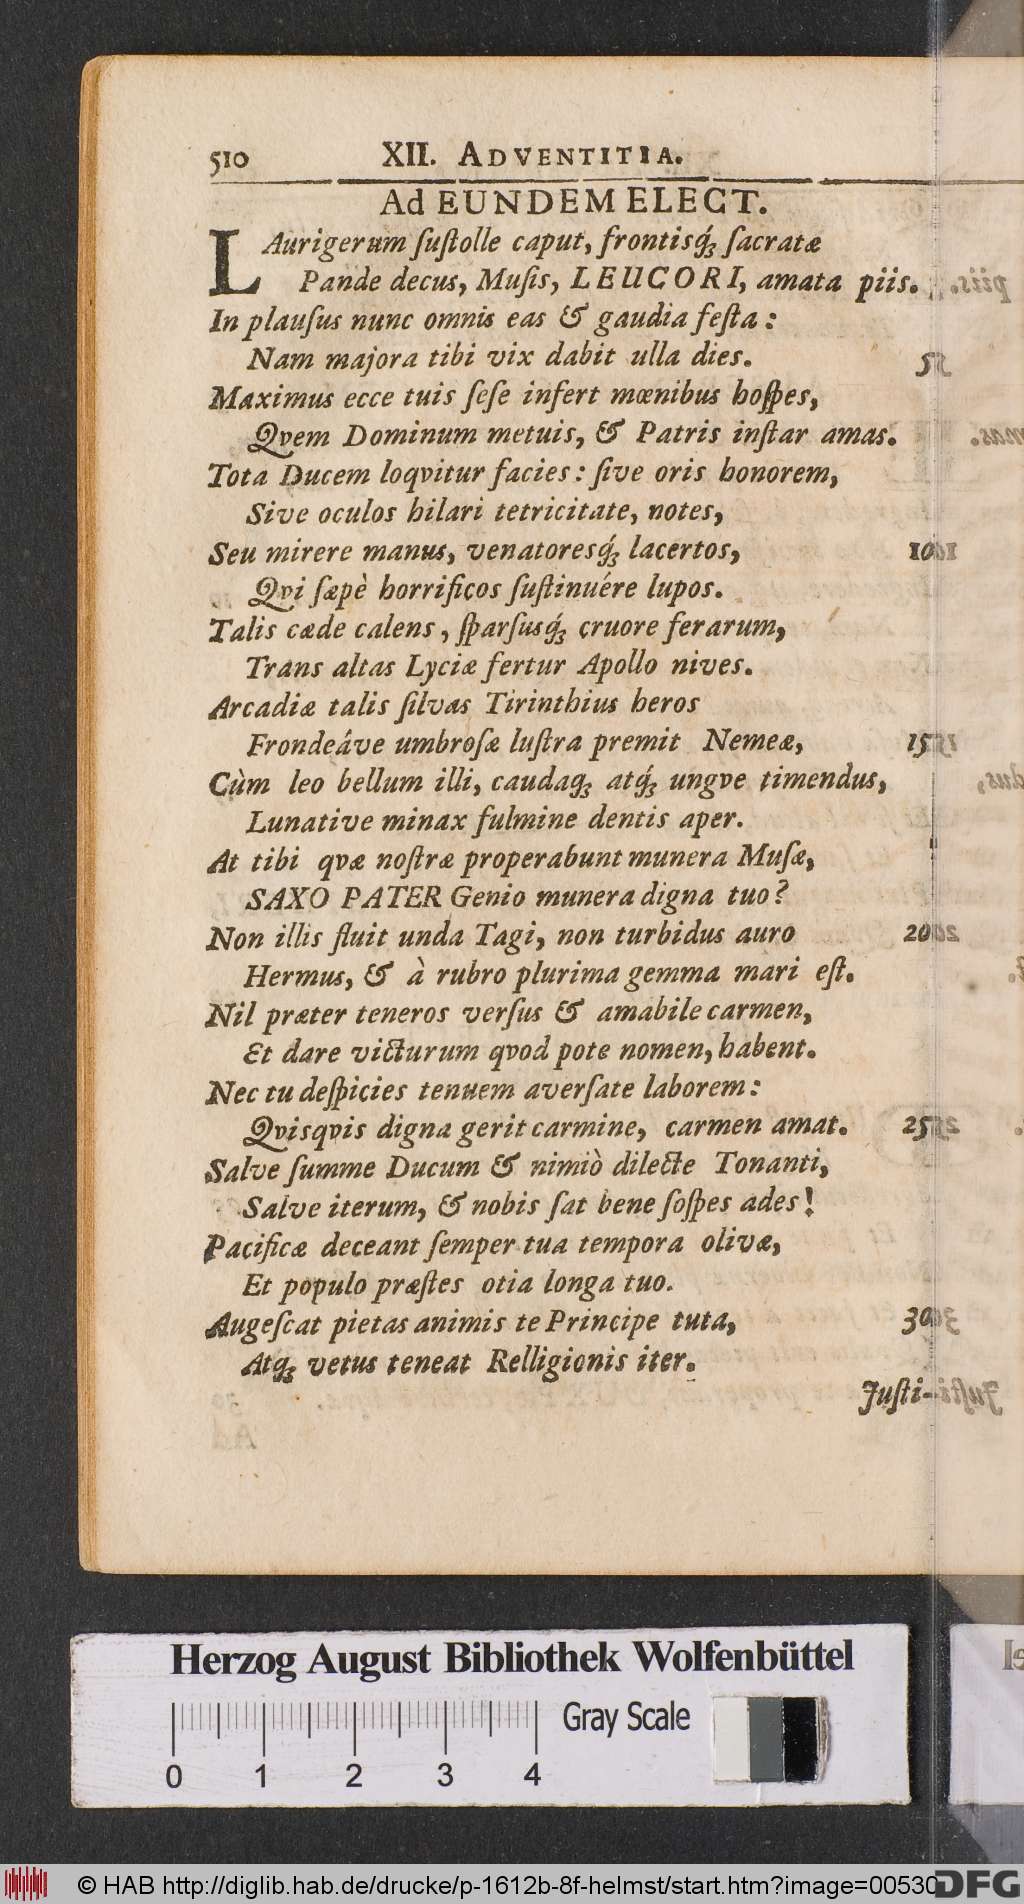 510 XII. ADVENTITIA.
Ad EUNDEM ELECT.
LAurigerum ſuſtolle caput, frontisq́ꝫ ſacratæ
Pande decus, Muſis, LEUCORI, amata piis.
In plauſus nunc omnis eas & gaudia feſta:
Nam majora tibi vix dabit ulla dies. 5
Maximus ecce tuis ſeſe infert mœnibus hoſpes,
Qvem Dominum metuis, & Patris inſtar amas.
Tota Ducem loqvitur facies: ſive oris honorem,
Sive oculos hilari tetricitate, notes,
Seu mirere manus, venatoresq́ꝫ lacertos, 10
Qvi ſæpè horrificos ſuſtinuére lupos.
Talis cæde calens, ſparſusq́ꝫ cruore ferarum,
Trans altas Lyciæ fertur Apollo nives.
Arcadiæ talis ſilvas Tirinthius heros
Frondeáve umbroſæ luſtra premit Nemeæ, 15
Cùm leo bellum illi, caudaqꝫ atq́ꝫ ungve timendus,
Lunative minax fulmine dentis aper.
At tibi qvæ noſtræ properabunt munera Muſæ,
SAXO PATER Genio munera digna tuo?
Non illis fluit unda Tagi, non turbidus auro 20
Hermus, & à rubro plurima gemma mari eſt.
Nil præter teneros verſus & amabile carmen,
Et dare victurum qvod pote nomen, habent.
Nec tu deſpicies tenuem averſate laborem:
Qvisqvis digna gerit carmine, carmen amat. 25
Salve ſumme Ducum & nimiò dilecte Tonanti,
Salve iterum, & nobis ſat bene ſoſpes ades!
Pacificæ deceant ſemper tua tempora olivæ,
Et populo præſtes otia longa tuo.
Augeſcat pietas animis te Principe tuta, 30
Atqꝫ vetus teneat Relligionis iter.
Juſti-
Herzog August Bibliothek Wolfenbüttel
Gray Scale
0 1 2 3 4
© HAB http://diglib.hab.de/drucke/p-1612b-8f-helmst/start.htm?image=00530
DFG